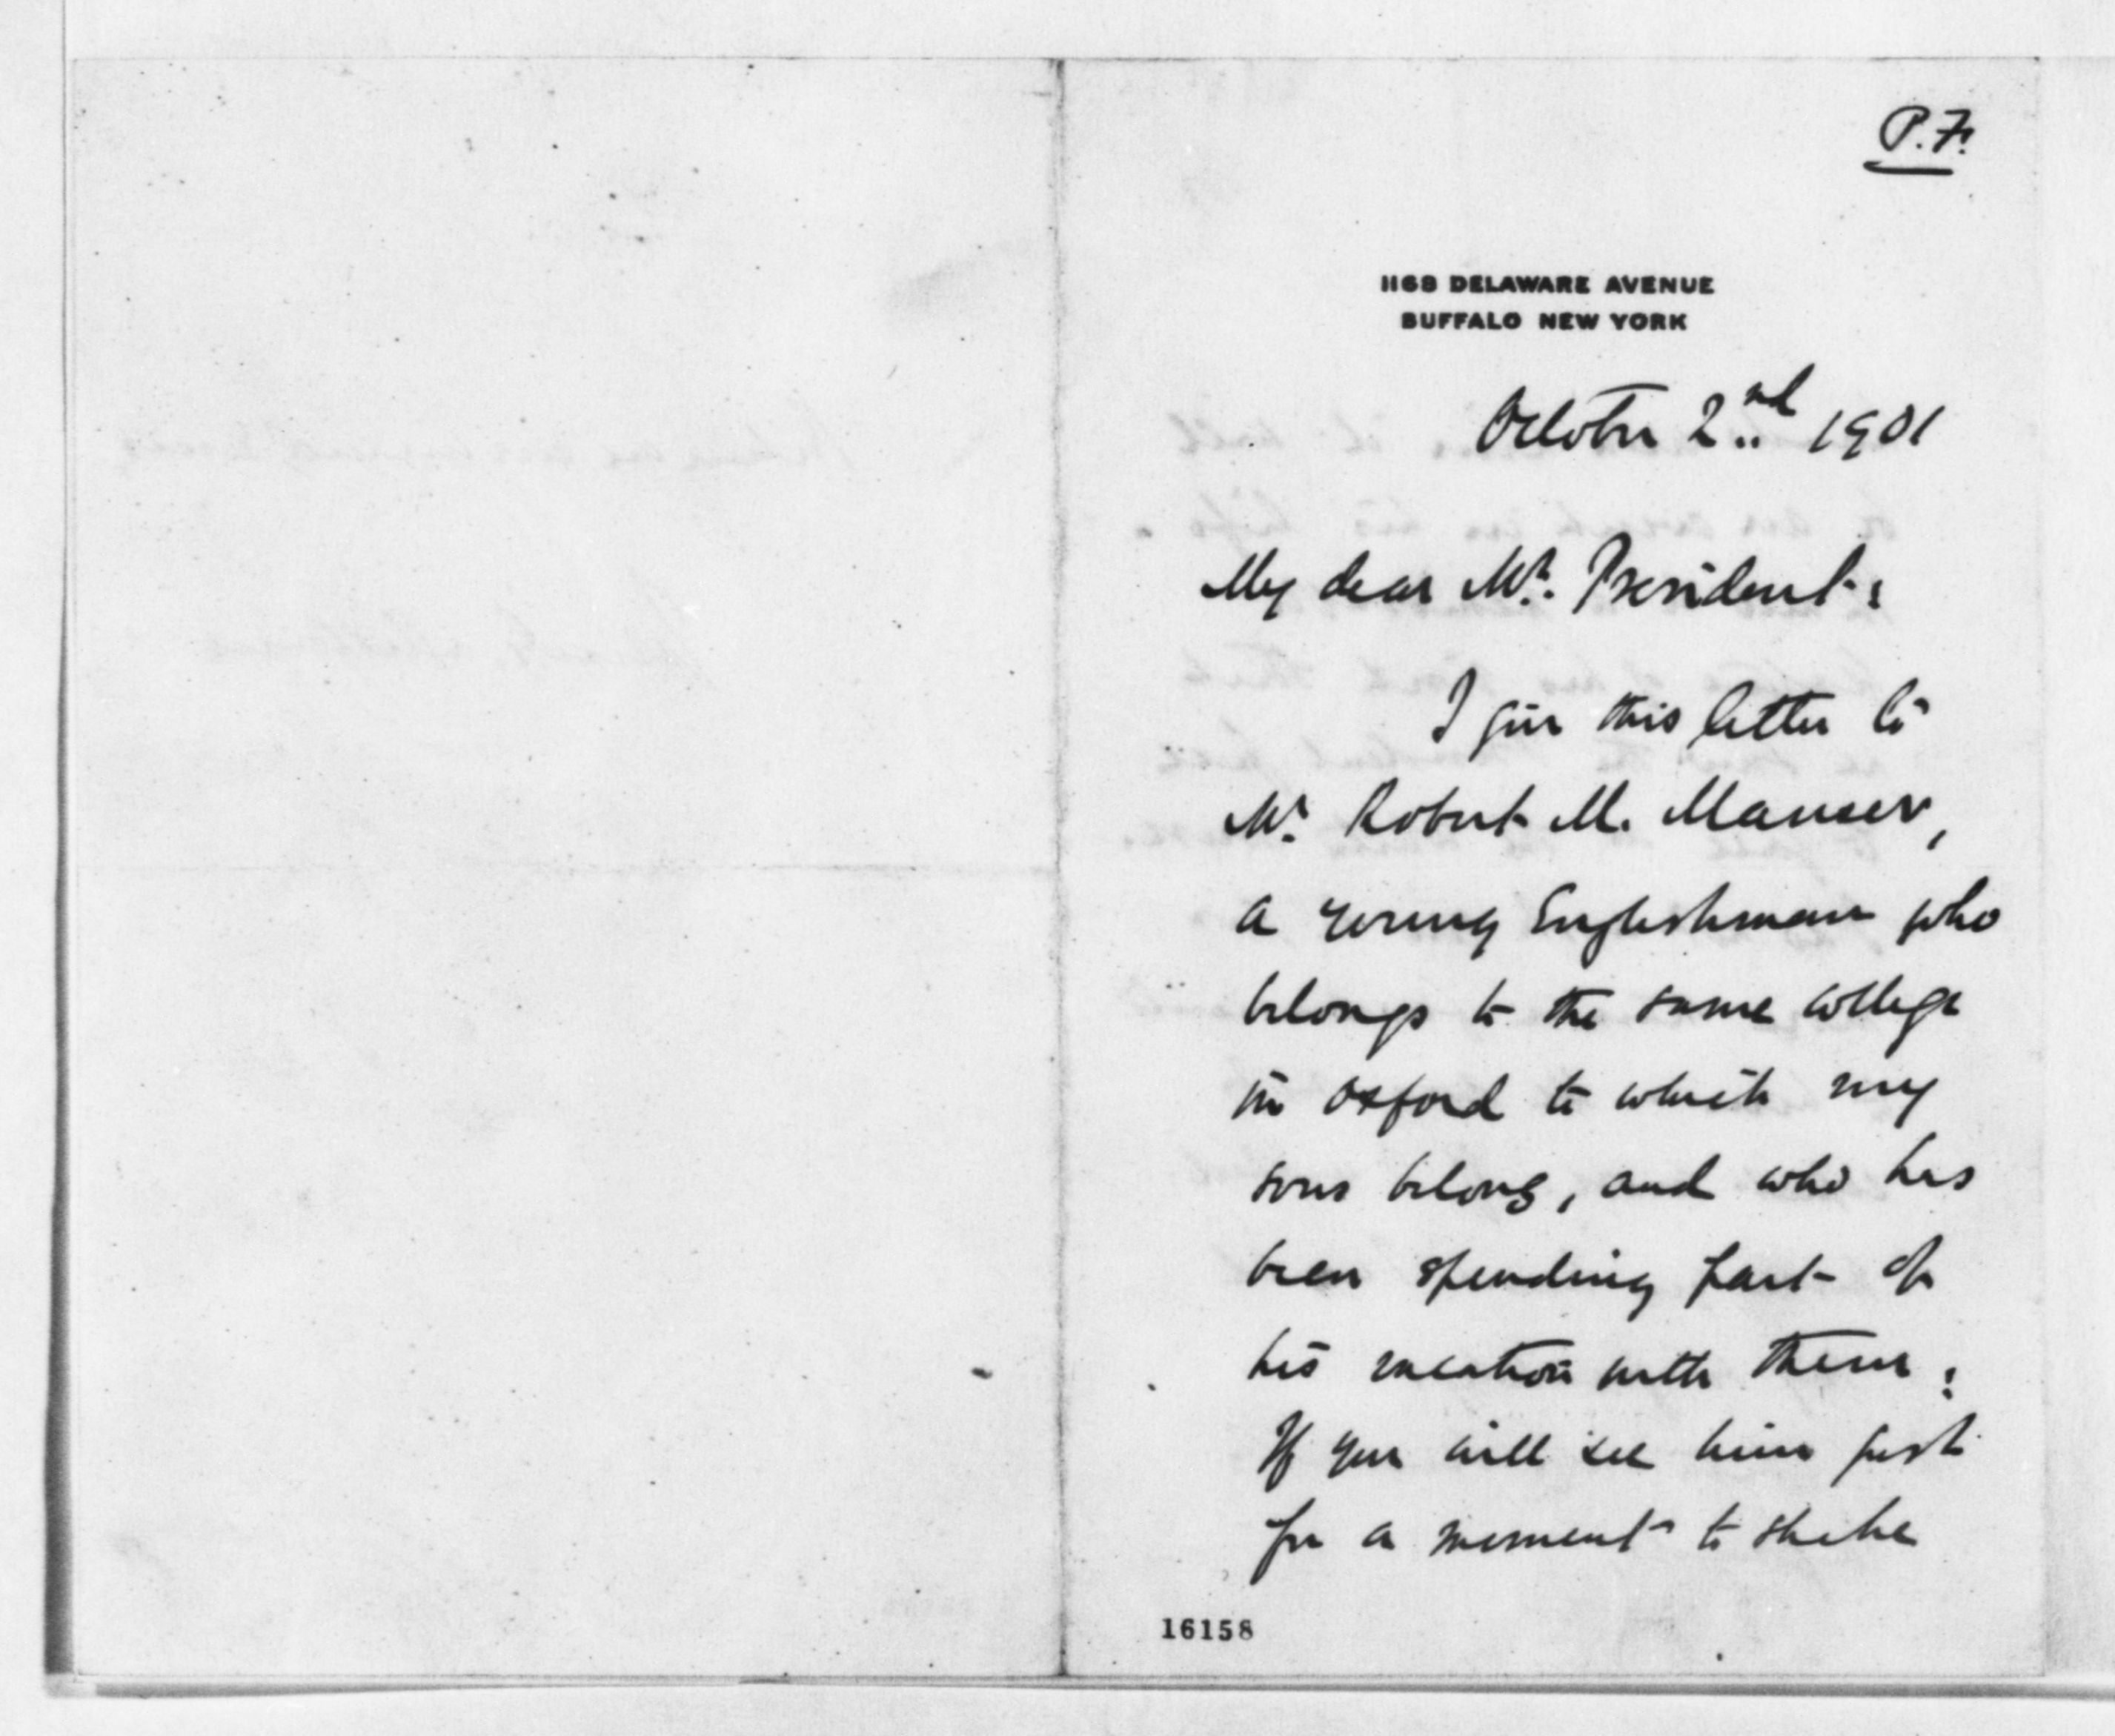 P.F.
1168 DELAWARE AVENUE
BUFFALO NEW YORK
October 2nd 1901
My dear Mr. President:
I give this letter to
Mr. Robert M. Manser,
a young Englishman who
belongs to the same college
in Oxford to which my
sons belong, and who has
been spending part of
his vacation with them.
If you will see him just
for a moment to shake
16158